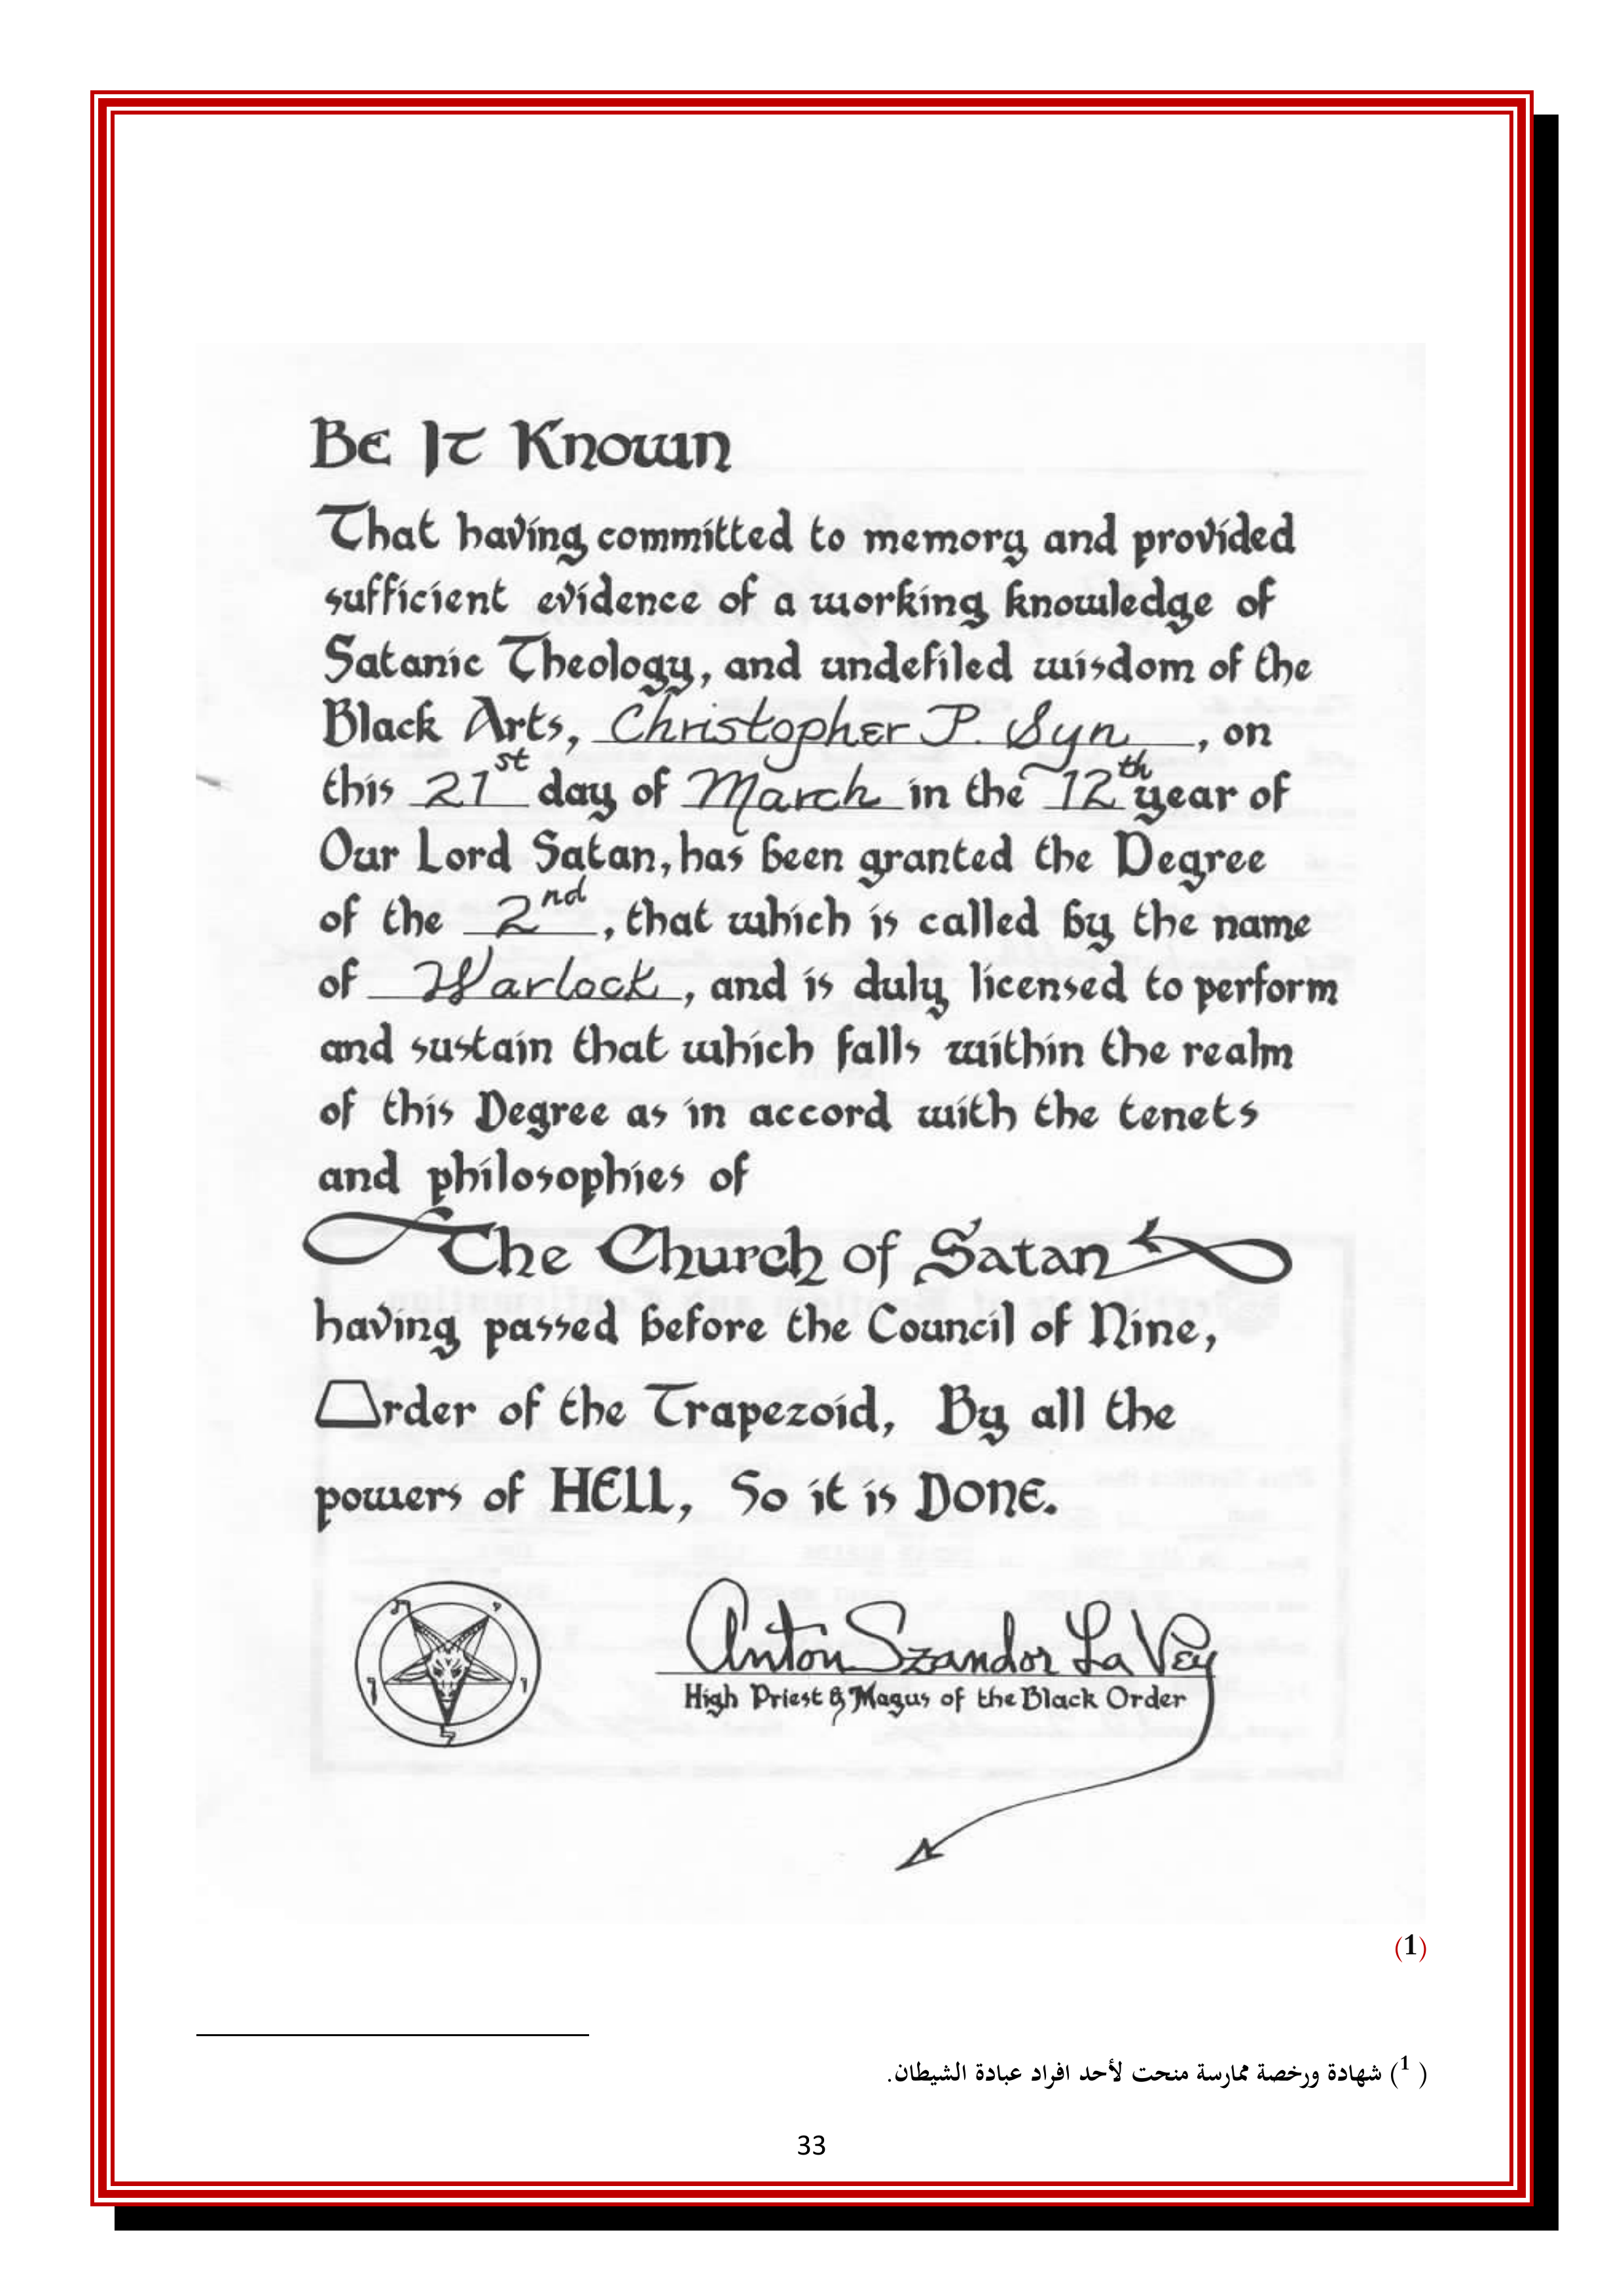 Be It Known
That having committed to memory and provided
sufficient evidence of a working knowledge of
Satanic Theology, and undefiled wisdom of the
Black Arts, Christopher P. Syn, on
this 21st day of March in the 12th year of
Our Lord Satan, has been granted the Degree
of the 2nd, that which is called by the name
of Warlock, and is duly licensed to perform
and sustain that which falls within the realm
of this Degree as in accord with the tenets
and philosophies of
The Church of Satan
having passed before the Council of Nine,
Order of the Trapezoid, By all the
powers of HELL, So it is DONE.
Anton Szandor LaVey
High Priest & Magus of the Black Order
(1)
(1) شهادة ورخصة ممارسة منحت لأحد افراد عبادة الشيطان.
33